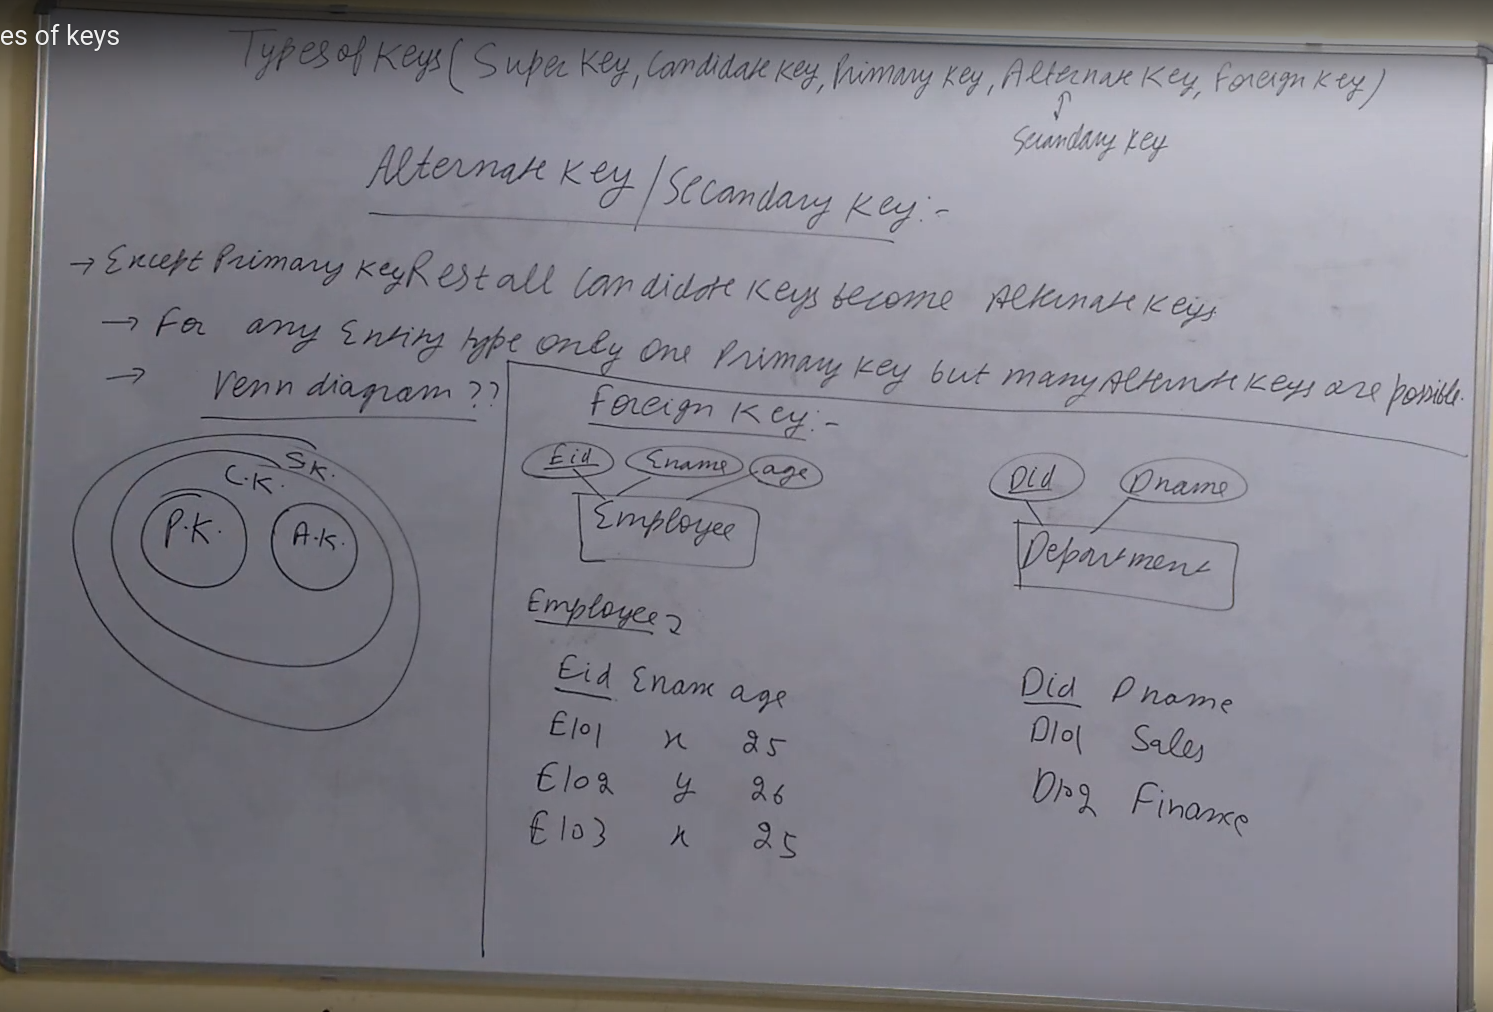 es of keys
Types of Keys (Super Key, Candidate Key, Primary Key, Alternate Key, Foreign Key)
Secandary Key
Alternate Key / Secandary Key:-
→ Except Primary Key Rest all Candidate Keys become Alternate Keys.
→ For any Entity type only one Primary Key but many Alternate Keys are possible.
→ Venn diagram ??
S.K.
C.K.
P.K.
A.K.
Foreign Key:-
Eid Ename age
Employee
Did Dname
Department
Employee
Eid Ename age
E101 x 25
E102 y 26
E103 x 25
Did Dname
D101 Sales
D102 Finance